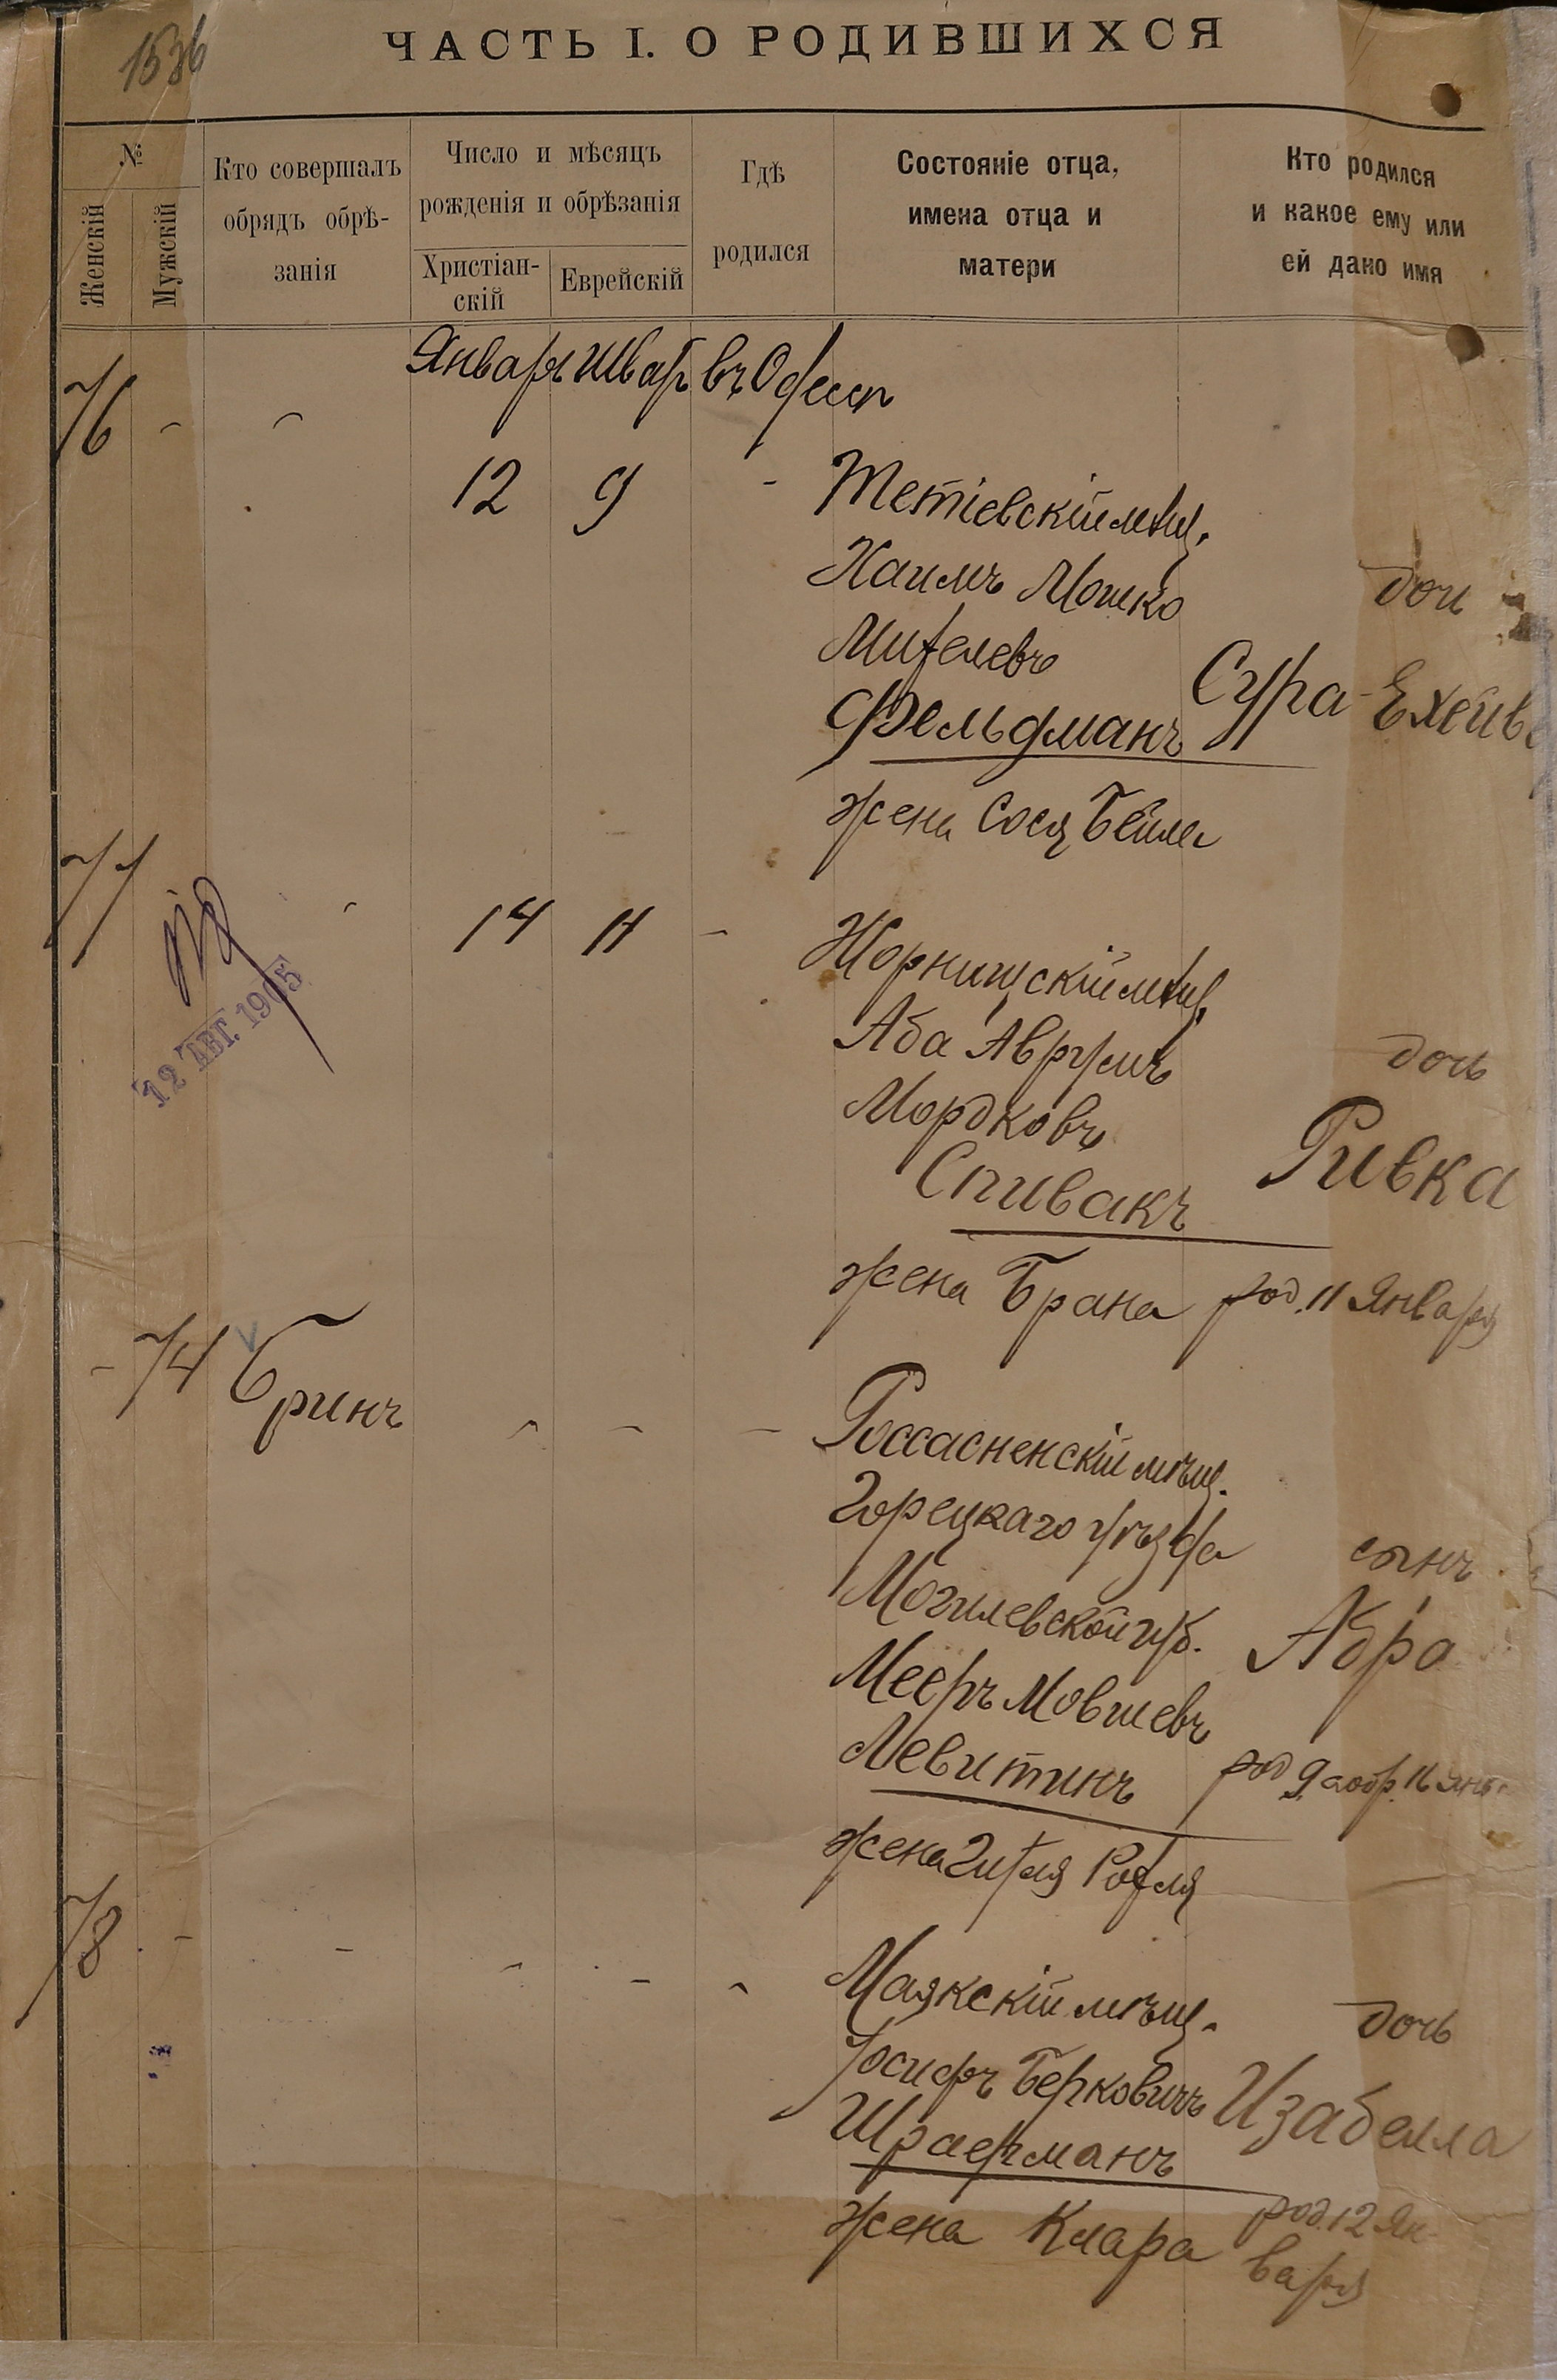 1536
ЧАСТЬ I. О РОДИВШИХСЯ
№
Женскій
Мужскій
Кто совершалъ
обрядъ обрѣ-
занія
Число и мѣсяцъ
рожденія и обрѣзанія
Христіан-
скій
Еврейскій
Гдѣ
родился
Состояніе отца,
имена отца и
матери
Кто родился
и какое ему или
ей дано имя
Январь Шват въ Одессѣ
76 - -
12 9 - Тетіевскій мѣщ.
Хаимъ Мошко
дочь
Фельдманъ
Сура-Ехевe
жена Сося Бейла
77 - 14 11 - Жорнищскій мѣщ.
12 АВГ. 1905
Аба Аврумъ
Мордковъ
дочь
Спивакъ
Ривка
жена Брана
род. 11 Января
- 74 Бринъ - - - Россасненскій мѣщ.
Горецкаго уѣзда
Могилевской губ.
Мееръ Мовшевъ
Левитинъ
сынъ
Абра
род 9, а обр. 16 янв.
жена Гитля Ротля
78 - - - - - Маякскій мѣщ.
Іосифъ Берковичъ
Шраерманъ
дочь
Изабелла
жена Клара
род. 12 Ян-
варя